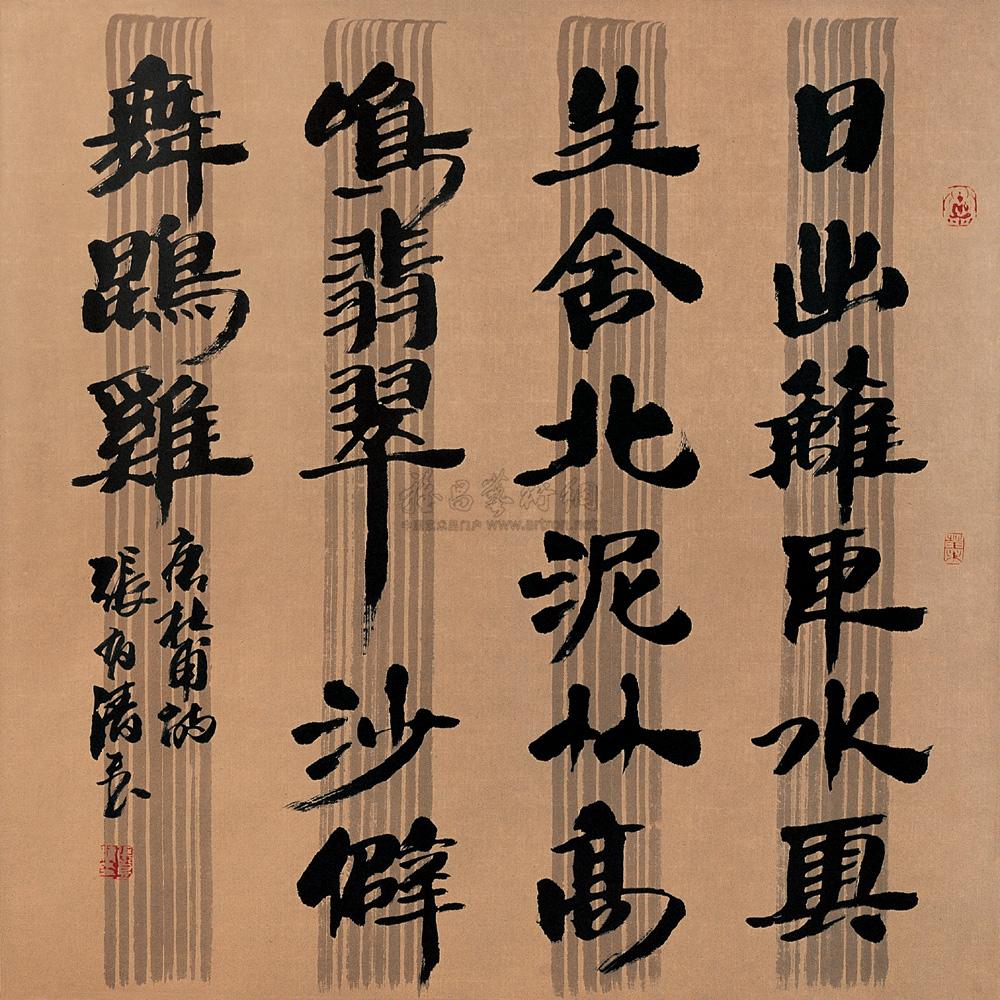 日出籬東水雲
生舍北泥竹高
鳴翡翠沙僻
舞鵾雞
唐杜甫詩
張有清書
雅昌藝術網
www.artron.net